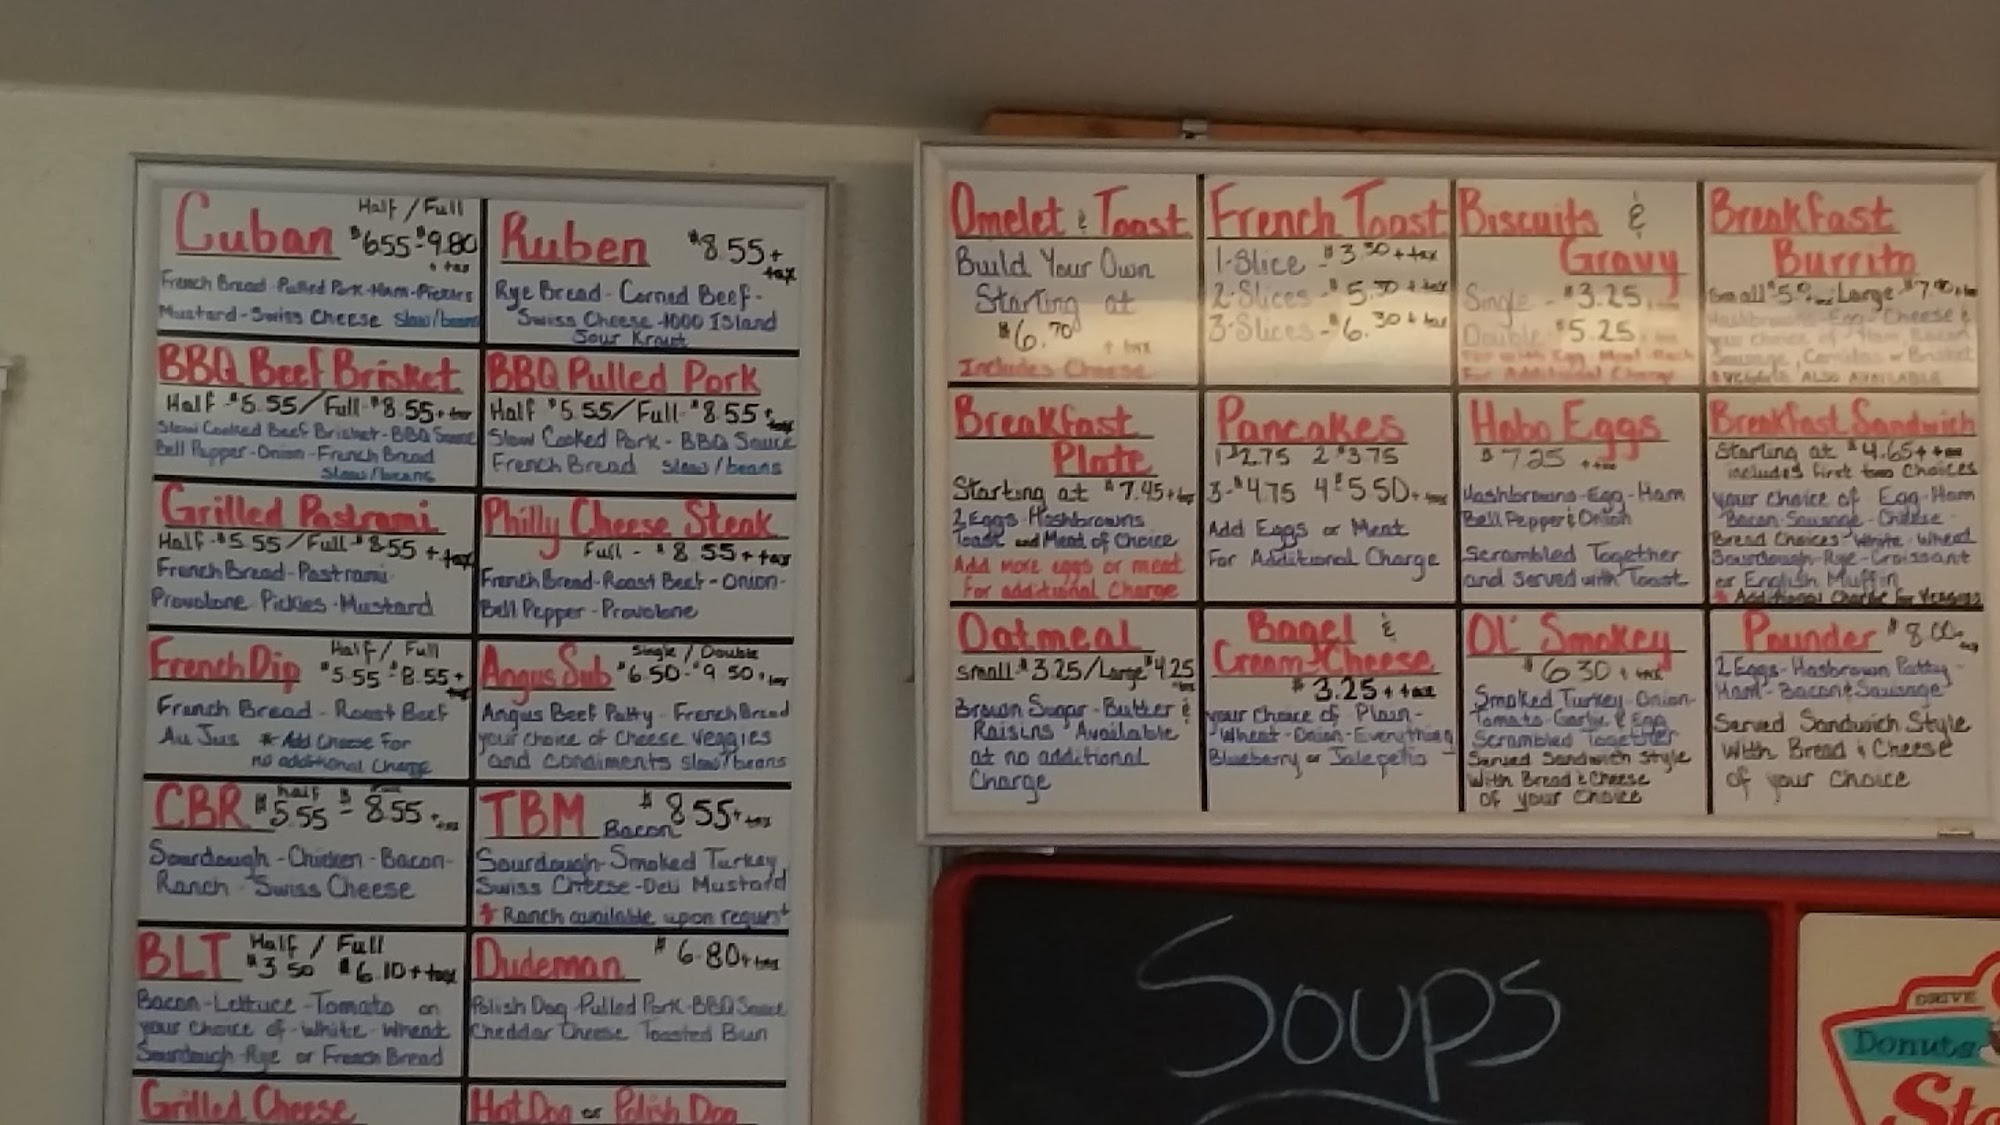 Cuban Half / Full
$6.55 - $9.80
+ tax
French Bread - Pulled Pork - Ham - Pickles
Mustard - Swiss Cheese slaw/beans
Ruben $8.55 + tax
Rye Bread - Corned Beef -
Swiss Cheese - 1000 Island
Sour Kraut
BBQ Beef Brisket
Half - $5.55 / Full - $8.55 + tax
Slow Cooked Beef Brisket - BBQ Sauce
Bell Pepper - Onion - French Bread
slaw/beans
BBQ Pulled Pork
Half $5.55 / Full - $8.55 + tax
Slow Cooked Pork - BBQ Sauce
French Bread slaw/beans
Grilled Pastrami
Half - $5.55 / Full $8.55 + tax
French Bread - Pastrami
Provolone Pickles - Mustard
Philly Cheese Steak
Full - $8.55 + tax
French Bread - Roast Beef - Onion -
Bell Pepper - Provolone
French Dip Half / Full
$5.55 - $8.55 + tax
French Bread - Roast Beef
Au Jus * Add Cheese for
no additional Charge
Angus Sub Single / Double
$6.50 - $9.50 + tax
Angus Beef Patty - French Bread
your choice of cheese veggies
and condiments slaw/beans
CBR half
$5.55 - $8.55 + tax
Sourdough - Chicken - Bacon -
Ranch - Swiss Cheese
TBM $8.55 + tax
Bacon
Sourdough - Smoked Turkey
Swiss Cheese - Deli Mustard
* Ranch available upon request
BLT Half / Full
$3.50 $6.10 + tax
Bacon - Lettuce - Tomato on
your choice of - White - Wheat
Sourdough - Rye or French Bread
Dudeman $6.80 + tax
Polish Dog - Pulled Pork - BBQ Sauce
Cheddar Cheese Toasted Bun
Grilled Cheese
Hot Dog or Polish Dog
Omelet & Toast
Build Your Own
Starting at
$6.70
+ tax
Includes Cheese
French Toast
1-Slice - $3.50 + tax
2-Slices - $5.50 + tax
3-Slices - $6.30 + tax
Biscuits &
Gravy
Single - $3.25
Double $5.25
For Additional Charge
Breakfast
Burrito
Small $5. Large $7.
Hashbrowns - Egg - Cheese &
your choice of Ham, Bacon
Sausage, Carnitas or Brisket
* Veggies ALSO AVAILABLE
Breakfast
Plate
Starting at $7.45 + tax
2 Eggs - Hashbrowns
Toast and Meat of Choice
Add more eggs or meat
For additional Charge
Pancakes
1 $2.75 2 $3.75
3 - $4.75 4 $5.50 + tax
Add Eggs or Meat
For Additional Charge
Hobo Eggs
$7.25 + tax
Hashbrowns - Egg - Ham
Bell Pepper & Onion
Scrambled Together
and served with Toast
Breakfast Sandwich
Starting at $4.65 + tax
includes first two choices
your choice of Egg - Ham
Bacon - Sausage - Cheese -
Bread Choices - White - Wheat
Sourdough - Rye - Croissant
or English Muffin
* Additional Charge for Veggies
Oatmeal
small $3.25 / Large $4.25
Brown Sugar - Butter &
Raisins Available
at no additional
Charge
Bagel &
Cream Cheese
$3.25 + tax
your choice of Plain -
Wheat - Onion - Everything
Blueberry or Jalepeño
Ol' Smokey
$6.30 + tax
Smoked Turkey - Onion -
Tomato - Garlic & Egg
Scrambled Together
Served Sandwich style
With Bread & Cheese
of your choice
Pounder $8.00 + tax
2 Eggs - Hasbrown Patty -
Ham - Bacon & Sausage
Served Sandwich Style
With Bread & Cheese
of your choice
Soups
DRIVE
Donuts